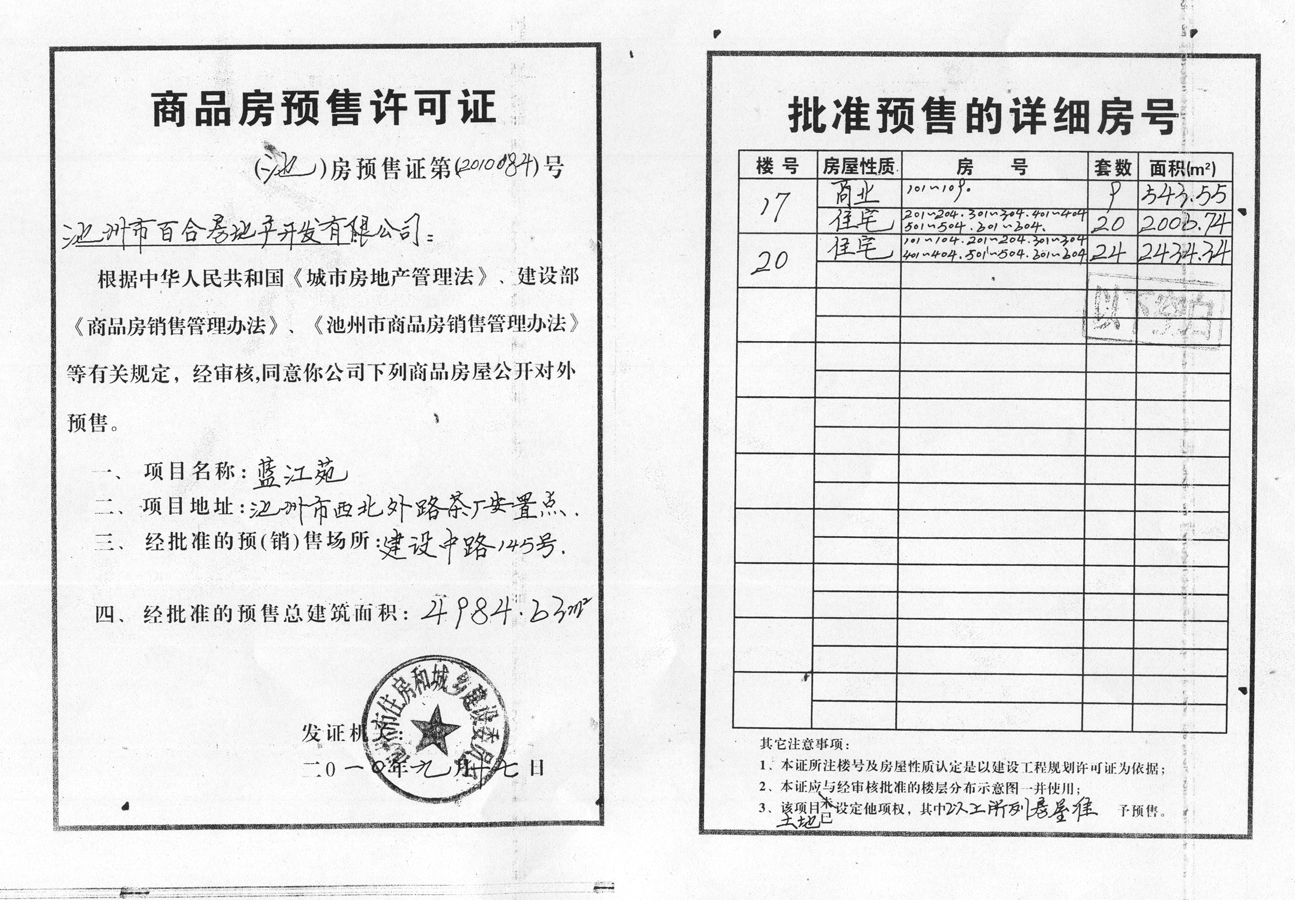 商品房预售许可证
(池)房预售证第(2010084)号
池州市百合房地产开发有限公司：
根据中华人民共和国《城市房地产管理法》、建设部
《商品房销售管理办法》、《池州市商品房销售管理办法》
等有关规定，经审核,同意你公司下列商品房屋公开对外
预售。
一、项目名称：蓝江苑
二、项目地址：池州市西北外路茶厂安置点.
三、经批准的预(销)售场所：建设中路145号.
四、经批准的预售总建筑面积：4984.63m²
池州市住房和城乡建设委员会
发证机关：
二0一0年九月十七日
批准预售的详细房号
楼号 房屋性质 房号 套数 面积(m²)
17 商业 101~109. 9 543.55
住宅 201~204.301~304.401~404 20 2006.74
501~504.601~604.
20 住宅 101~104.201~204.301~304 24 2434.34
401~404.501~504.601~604
以下空白
其它注意事项：
1、本证所注楼号及房屋性质认定是以建设工程规划许可证为依据；
2、本证应与经审核批准的楼层分布示意图一并使用；
3、该项目土地未已设定他项权，其中以上所列房屋准予预售。